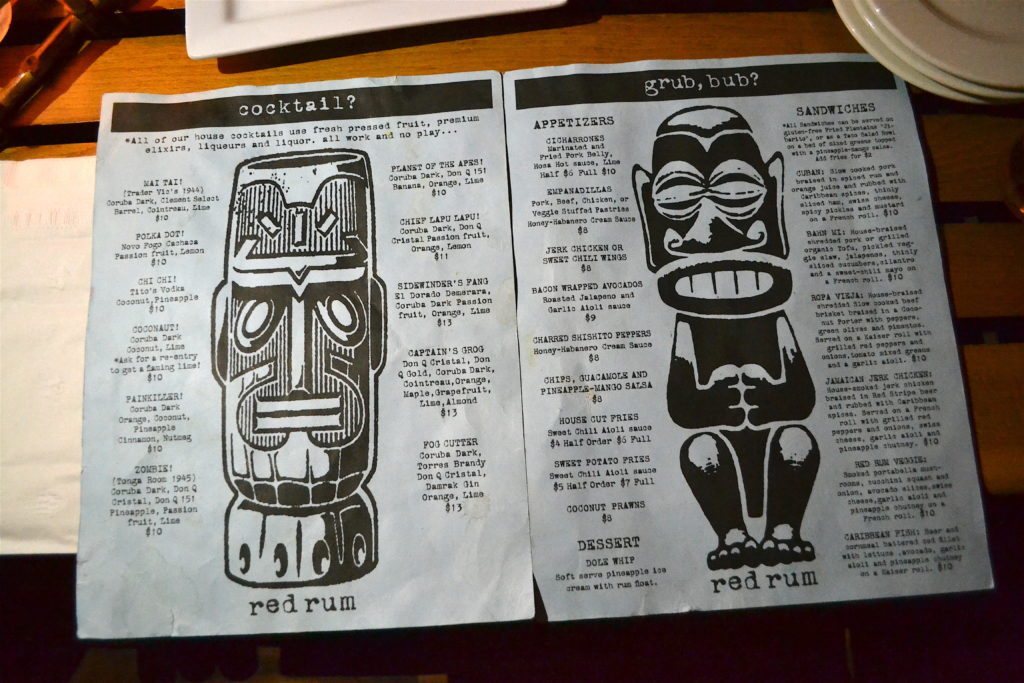 cocktail?
*All of our house cocktails use fresh pressed fruit, premium
elixirs, liqueurs and liquor. all work and no play...
MAI TAI!
(Trader Vic's 1944)
Coruba Dark, Clement Select
Barrel, Cointreau, Lime
$10
POLKA DOT!
Novo Fogo Cachaca
Passion fruit, Lemon
$10
CHI CHI!
Tito's Vodka
Coconut, Pineapple
$10
COCONAUT!
Coruba Dark
Coconut, Lime
*Ask for a re-entry
to get a flaming lime!
$10
PAINKILLER!
Coruba Dark
Orange, Coconut,
Pineapple
Cinnamon, Nutmeg
$10
ZOMBIE!
(Tonga Room 1945)
Coruba Dark, Don Q
Cristal, Don Q 151
Pineapple, Passion
fruit, Lime
$10
PLANET OF THE APES!
Coruba Dark, Don Q 151
Banana, Orange, Lime
$10
CHIEF LAPU LAPU!
Coruba Dark, Don Q
Cristal Passion fruit,
Orange, Lemon
$11
SIDEWINDER'S FANG
El Dorado Demerara,
Coruba Dark Passion
fruit, Orange, Lime
$13
CAPTAIN'S GROG
Don Q Cristal, Don
Q Gold, Coruba Dark,
Cointreau, Orange,
Maple, Grapefruit,
Lime, Almond
$13
FOG CUTTER
Coruba Dark,
Torres Brandy
Don Q Cristal,
Damrak Gin
Orange, Lime
$13
red rum
grub, bub?
APPETIZERS
CICHARRONES
Marinated and
Fried Pork Belly,
Hosa Hot sauce, Lime
Half $6 Full $10
EMPANADILLAS
Pork, Beef, Chicken, or
Veggie Stuffed Pastries
Honey-Habanero Cream Sauce
$8
JERK CHICKEN OR
SWEET CHILI WINGS
$8
BACON WRAPPED AVOCADOS
Roasted Jalapeno and
Garlic Aioli sauce
$9
CHARRED SHISHITO PEPPERS
Honey-Habanero Cream Sauce
$8
CHIPS, GUACAMOLE AND
PINEAPPLE-MANGO SALSA
$8
HOUSE CUT FRIES
Sweet Chili Aioli sauce
$4 Half Order $6 Full
SWEET POTATO FRIES
Sweet Chili Aioli sauce
$5 Half Order $7 Full
COCONUT PRAWNS
$8
DESSERT
DOLE WHIP
Soft serve pineapple ice
cream with rum float.
SANDWICHES
*All Sandwiches can be served on
gluten-free Fried Plantains "Ji-
barito", or as a Taco Salad Bowl
on a bed of mixed greens topped
with a pineapple-mango salsa.
Add fries for $2
CUBAN: Slow cooked pork
braised in spiced rum and
orange juice and rubbed with
Caribbean spices, thinly
sliced ham, swiss cheese,
spicy pickles and mustard
on a French roll. $10
BAHN MI: House-braised
shredded pork or grilled
organic Tofu, pickled veg-
gie slaw, jalapenos, thinly
sliced cucumbers, cilantro
and a sweet-chili mayo on
a French roll. $10
ROPA VIEJA: House-braised
shredded Slow cooked beef
brisket braised in a Coco-
nut Porter with peppers,
green olives and pimentos.
Served on a Kaiser roll with
grilled red peppers and
onions, tomato mixed greens
and a garlic aioli. $10
JAMAICAN JERK CHICKEN:
House-smoked jerk chicken
braised in Red Stripe beer
and rubbed with Caribbean
spices. Served on a French
roll with grilled red
peppers and onions, swiss
cheese, garlic aioli and
pineapple chutney. $10
RED RUM VEGGIE:
Smoked portabella mush-
rooms, zucchini squash and
onion, avocado slices, swiss
cheese, garlic aioli and
pineapple chutney on a
French roll. $10
CARIBBEAN FISH: Beer and
cornmeal battered cod fillet
with lettuce, avocado, garlic
aioli and pineapple chutney
on a Kaiser roll. $10
red rum